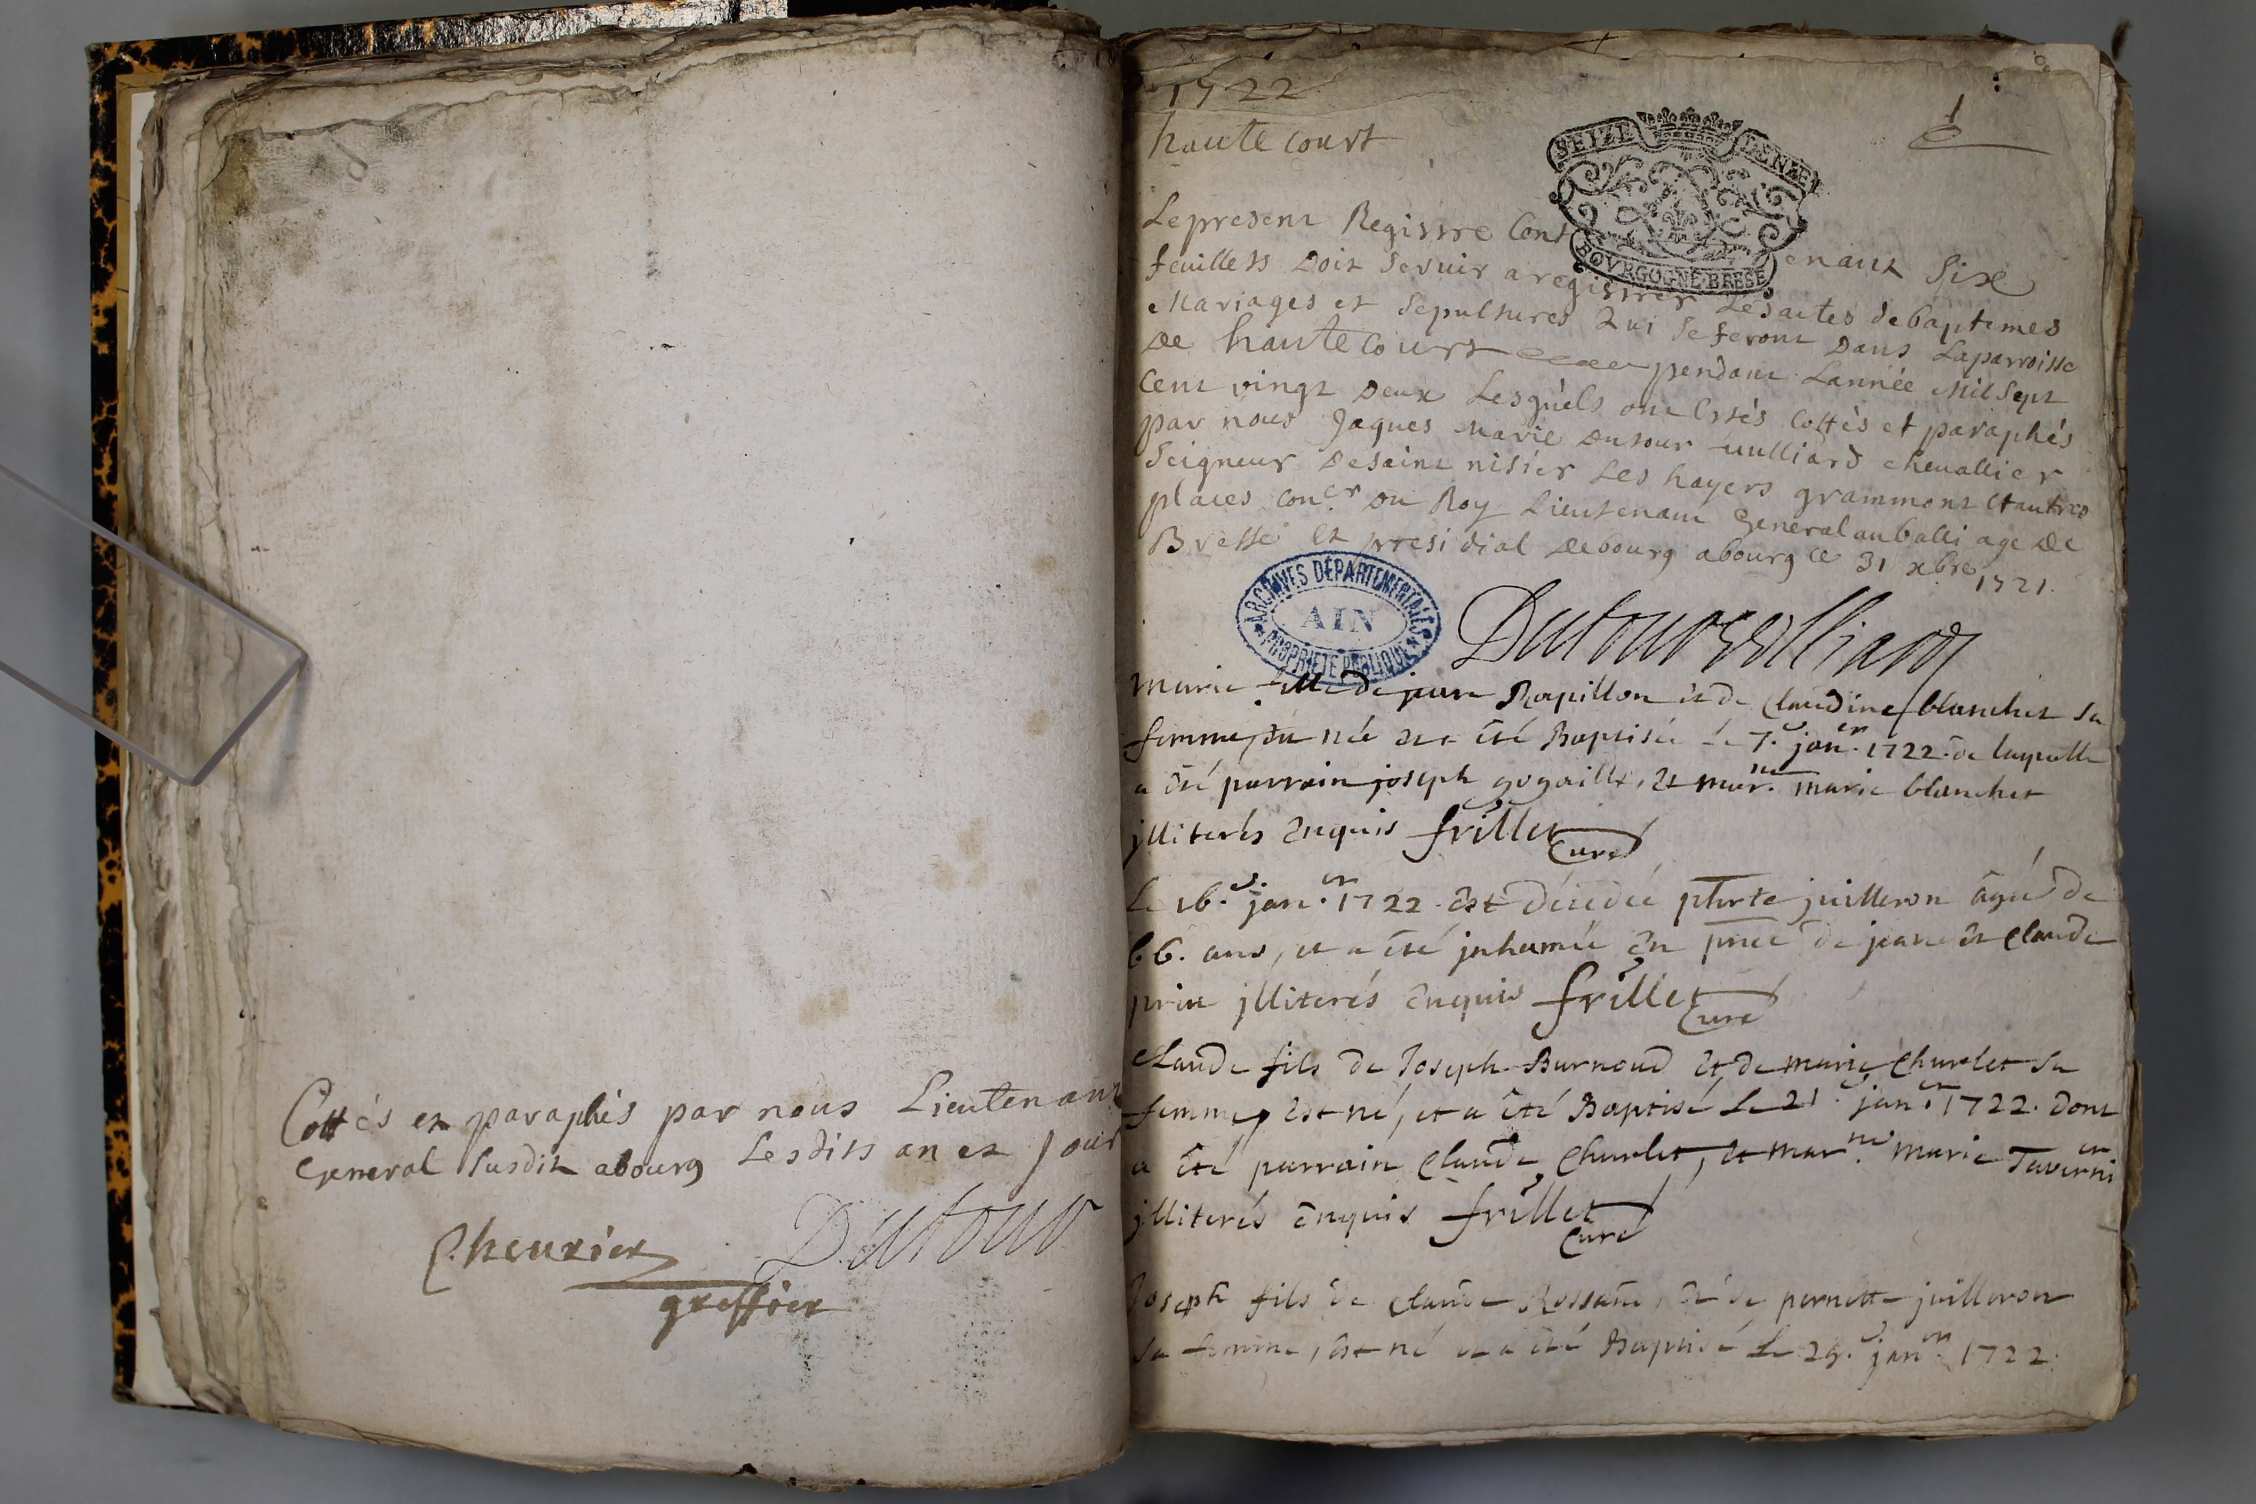 Cottés et paraphés par nous Lieutenant
General susdit abourg Lesdits an et Jour
Cheurier Dutour
greffier
1722
1
haute court
SEIZE DENIE
BOVRGOGNE BRESSE
Le present Registre Cont enant Six
feuillets Doit Servir a registrer Les actes de baptemes
Mariages et Sepultures qui se feront Dans Laparroisse
De haute Court pendant Lannée Mil Sept
Cent vingt Deux Lesquels ont Estés Cottés et paraphés
par nous Jaques Marie Dutour Vulliard chevallier
Seigneur De saint nisier Les hayers grammont Et autres
places con.er Du Roy Lieutenant General au balliage De
Bresse Et presidial De bourg abourg ce 31 xbre 1721.
ARCHIVES DÉPARTEMENTALES
AIN
PROPRIÉTÉ PUBLIQUE
Dutour Vulliard
Marie fille de jean Rapillon et de Claudine blanchet sa
femme, est née et a été Baptisée le 7.e jan.er 1722. de laquelle
a été parrain joseph gogaille, et mar.ne marie blanchet
jlliterés enquis frillet
Curé
Le 16.e jan.er 1722. est décedée juilleron agée de
66. ans, et a été jnhumée en pnce de jean et Claude
prin jlliterés enquis frillet
Curé
Claude fils de Joseph Burnoud et de marie Churlet sa
femme, est né, et a été Baptisé le 21.e jan.er 1722. dont
a été parrain Claude Churlet, et mar.ne marie Taverni.er
jlliterés enquis frillet
Curé
Joseph fils de Claude Rossand, et de pernette juilleron
sa femme, est né et a été Baptisé le 29.e jan.er 1722.